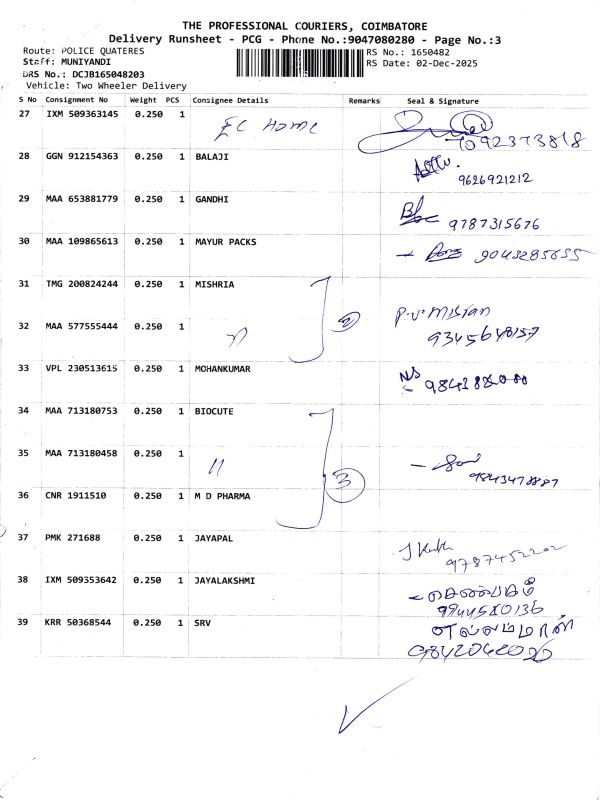 THE PROFESSIONAL COURIERS, COIMBATORE
Delivery Runsheet - PCG - Phone No.:9047080280 - Page No.:3
Route: POLICE QUATERES
RS No.: 1650482
Staff: MUNIYANDI
RS Date: 02-Dec-2025
DRS No.: DCJB165048203
Vehicle: Two Wheeler Delivery
S No Consignment No Weight PCS Consignee Details Remarks Seal & Signature
27 IXM 509363145 0.250 1 EC HOME
7092373818
28 GGN 912154363 0.250 1 BALAJI
9626921212
29 MAA 653881779 0.250 1 GANDHI
9787315676
30 MAA 109865613 0.250 1 MAYUR PACKS
9043285655
31 TMG 200824244 0.250 1 MISHRIA
P.V. Misian
32 MAA 577555444 0.250 1 " 2
9345648157
33 VPL 230513615 0.250 1 MOHANKUMAR
NS
34 MAA 713180753 0.250 1 BIOCUTE
35 MAA 713180458 0.250 1 "
3
9843473887
36 CNR 1911510 0.250 1 M D PHARMA
37 PMK 271688 0.250 1 JAYAPAL
9787452202
38 IXM 509353642 0.250 1 JAYALAKSHMI
செண்பகம்
9944580136
39 KRR 50368544 0.250 1 SRV
9842042020